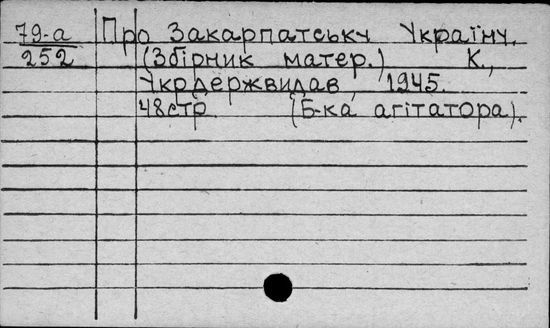 79-а Про Закарпатську Україну.
252 (Збірник матер.) К.,
Укрдержвидав, 1945.
48стр. (Б-ка агітатора).